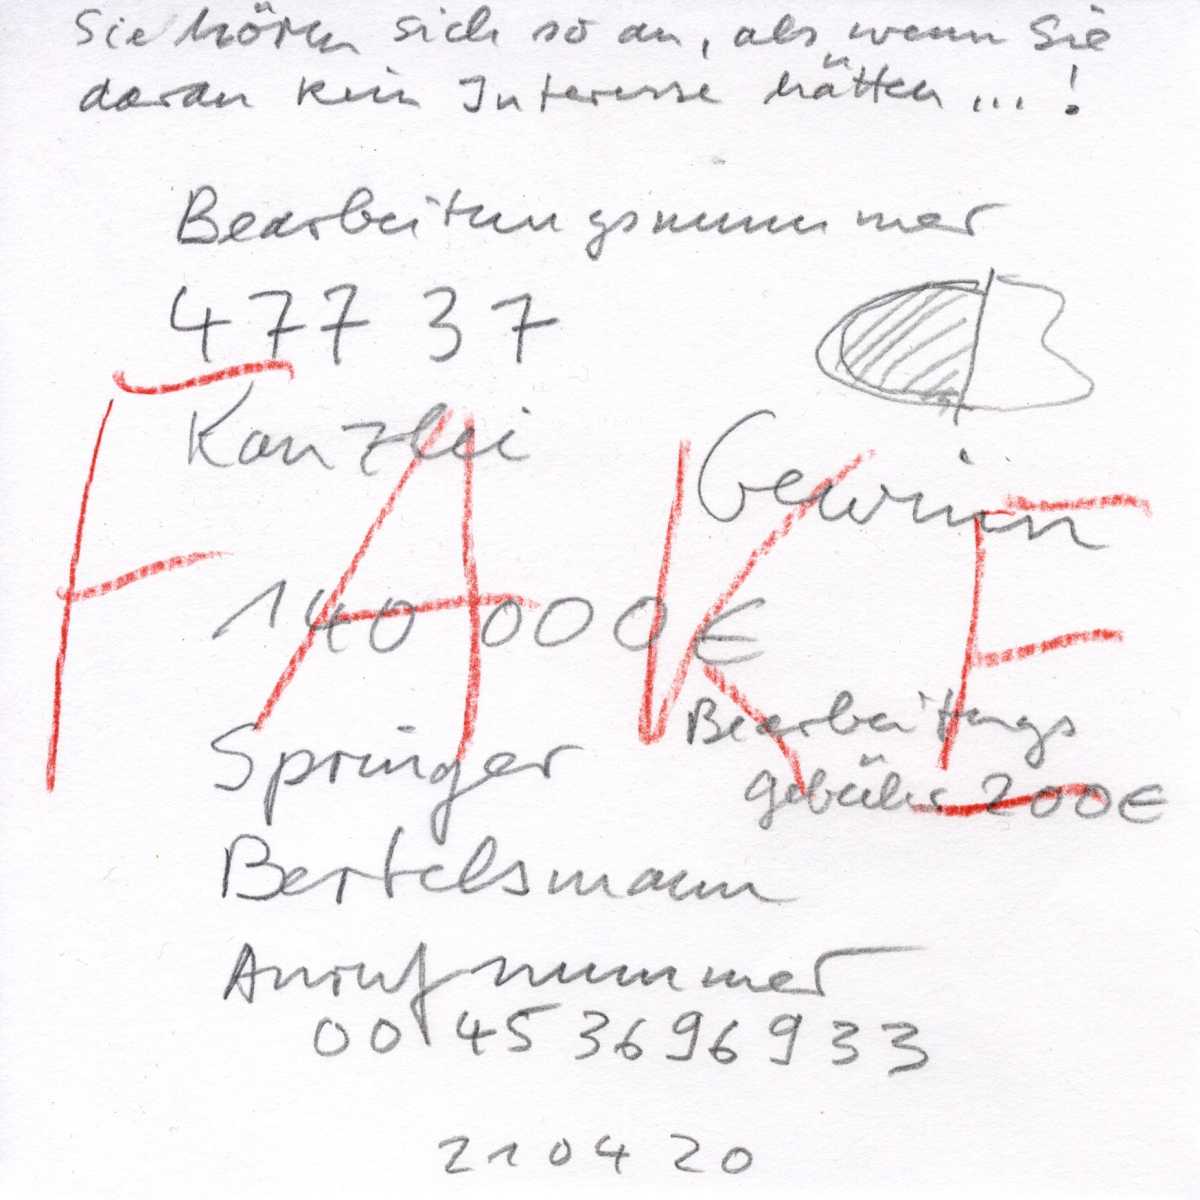 Sie hören sich so an, als wenn Sie
daran kein Interesse hätten...!
Bearbeitungsnummer
477 37
Kanzlei
Gewinn
FAKE
140 000 €
Bearbeitungs
gebühr 200€
Springer
Bertelsmann
Anrufnummer
00 45 36 96 933
21 04 20